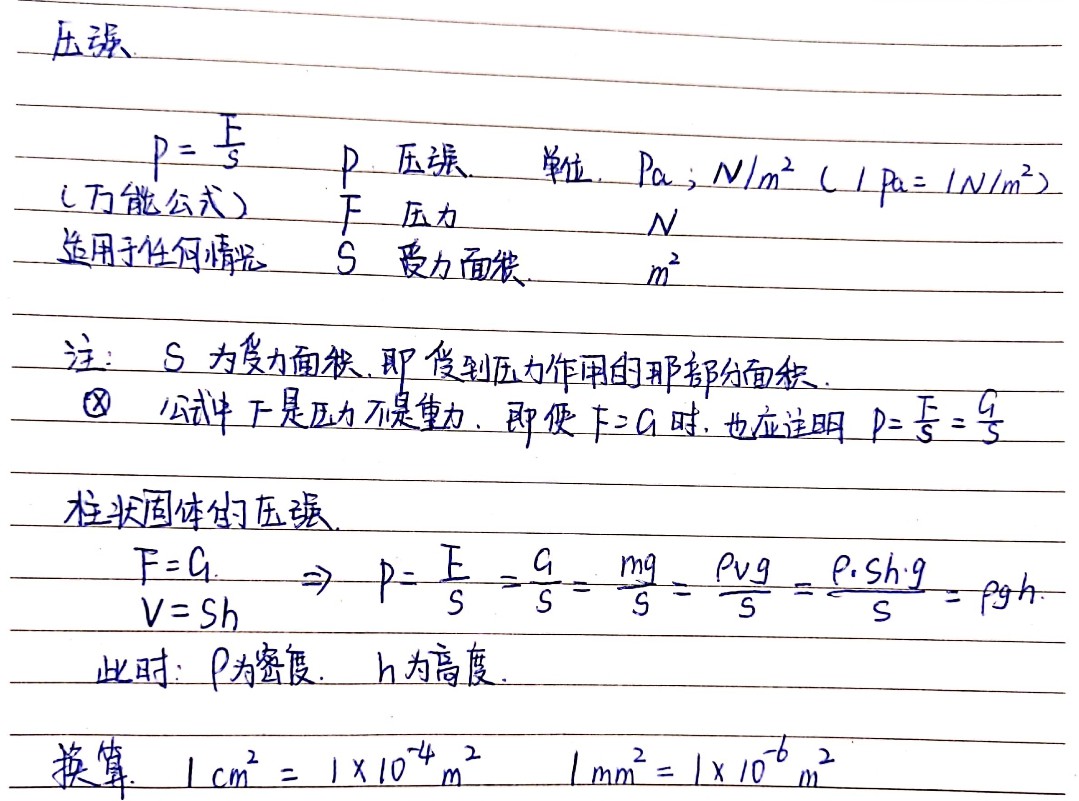 压强
p = F/S  p 压强  单位. Pa; N/m² (1 Pa = 1N/m²)
(万能公式)  F 压力  N
适用于任何情况  S 受力面积.  m²
注: S 为受力面积.即受到压力作用的那部分面积.
⊗ 公式中 F 是压力不是重力. 即使 F=G 时.也应注明 P = F/S = G/S
柱状固体的压强.
F=G. ⇒ P = F/S = G/S = mg/S = ρvg/S = ρ·sh·g/S = ρgh.
V=Sh
此时: ρ为密度. h为高度.
换算. 1 cm² = 1×10⁻⁴ m²  1 mm² = 1×10⁻⁶ m²